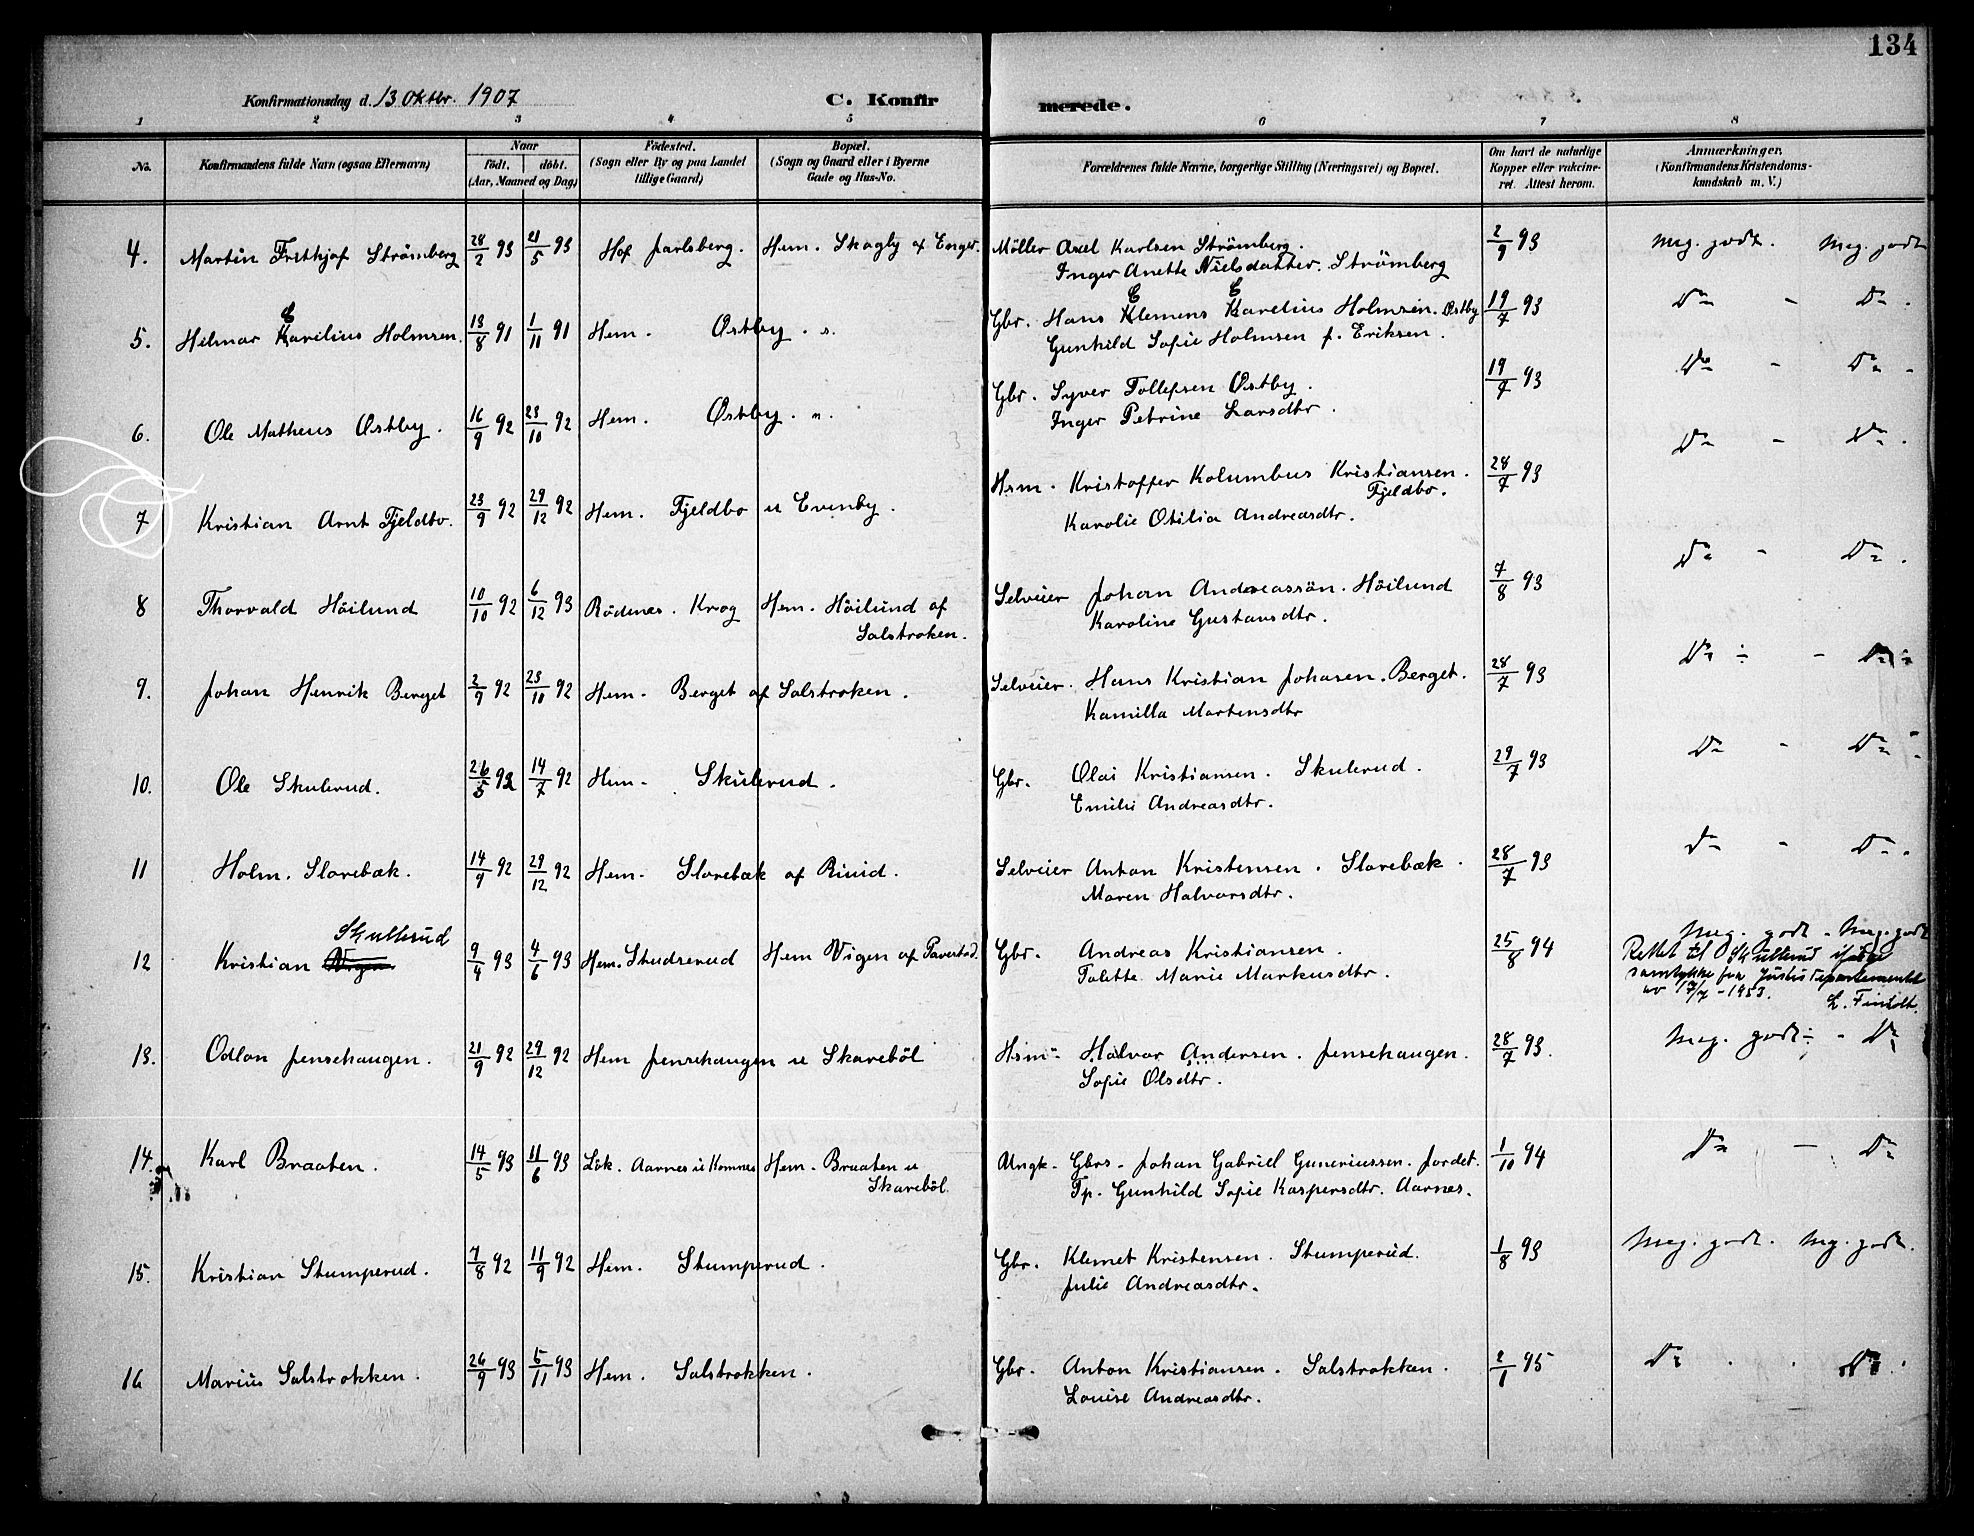 134
Konfirmationsdag d. 13 Oktbr. 1907
C. Konfirmerede.
1 2 3 4 5 6 7 8
No.
Konfirmandens fulde Navn (ogsaa Efternavn)
Naar
født. døbt.
(Aar, Maaned og Dag)
Fødested.
(Sogn eller By og paa Landet
tillige Gaard)
Bopæl.
(Sogn og Gaard eller i Byerne
Gade og Hus-No.
Forældrenes fulde Navne, borgerlige Stilling (Næringsvei) og Bopæl.
Om havt de naturlige
Kopper eller vakcine-
ret. Attest herom.
Anmærkninger.
(Konfirmandens Kristendoms-
kundskab m. V.)
4. Martin Frithjof Strömberg 28/2 93 21/5 93 Hof Jarlsberg. Hem. Skogly af Enger. Möller Axel Karlsen Strömberg. 2/9 93 Meg. godt. Meg. godt
Inger Anette Nielsdatter. Strömberg
C C C
5. Hilmar Karelius Holmsen. 13/8 91 1/11 91 Hem. Østby. s. Gbr. Hans Klemens Karelius Holmsen. Østby 19/7 93 Do - Do.
Gunhild Sofie Holmsen f. Eriksen.
6. Ole Matheus Østby. 16/9 92 23/10 92 Hem. Østby. n. Gbr. Syver Tollefsen Østby. 19/7 93 Do - Do.
Inger Petrine Larsdtr.
7 Kristian Arnt Fjeldbo. 23/9 92 29/12 92 Hem. Fjeldbo u Evenby. Hsm. Kristoffer Kolumbus Kristiansen. 28/7 93 Do - Do.
Fjeldbo.
Karolie Otilia Andreasdtr.
8 Thorvald Höilund 10/10 92 6/12 93 Rödenes. Krog Hem. Höilund af Selveier Johan Andreassön. Höilund 7/8 93 Do - Do.
Solstroken. Karoline Gustavsdtr.
9. Johan Henrik Berget 2/9 92 23/10 92 Hem. Berget af Solstroken. Selveier. Hans Kristian Johasen. Berget. 28/7 93 Do - Do
Kamilla Martensdtr
10. Ole Skulerud. 26/5 92 14/7 92 Hem. Skulerud. Gbr. Olai Kristiansen. Skulerud. 29/7 93 Do - Do
Emilie Andreasdtr.
11 Holm. Slorebæk. 14/9 92 29/12 92 Hem. Slorebæk af Riiid. Selveier Anton Kristensen. Slorebæk. 28/7 93 Do - Do.
Maren Halvorsdtr.
Skullerud
12 Kristian Vigen 9/4 93 4/6 93 Hem. Studserud Hem Vigen af Taverstad. Gbr. Andreas Kristiansen. 25/8 94 Meg. godt - Meg. godt
Tolette Marie Markusdtr.
Rettet til Skullerud ifølge
samtykke fra Justisdepartementet
av 17/7 - 1953.
13. Odlon Jensehaugen. 21/9 92 29/12 92 Hem Jensehaugen u Skareböl Hsm - Halvor Andersen. Jensehaugen. 28/7 93. Meg. godt - Do
Sofie Olsdtr.
14. Karl Braaten. 14/5 93 11/6 93 Lök. Aarnes u Komnes Hem. Braaten u Ungk. Gbrs. Johan Gabriel Guneriussen. Jordet. 1/10 94 Do - Do
Skareböl. Tp. Gunhild Sofie Kaspersdtr. Aarnes.
15. Kristian Stumperud. 7/8 92 11/9 92 Hem. Stumperud. Gbr. Klemet Kristensen. Stumperud. 1/8 93 Meg. godt. Meg. godt.
Julie Andreasdtr.
16 Marius Solstrokken. 26/9 93 5/11 93 Hem. Solstrokken. Gbr. Anton Kristiansen. Solstrokken. 2/1 95 Do . . Do.
Louise Andreasdtr.